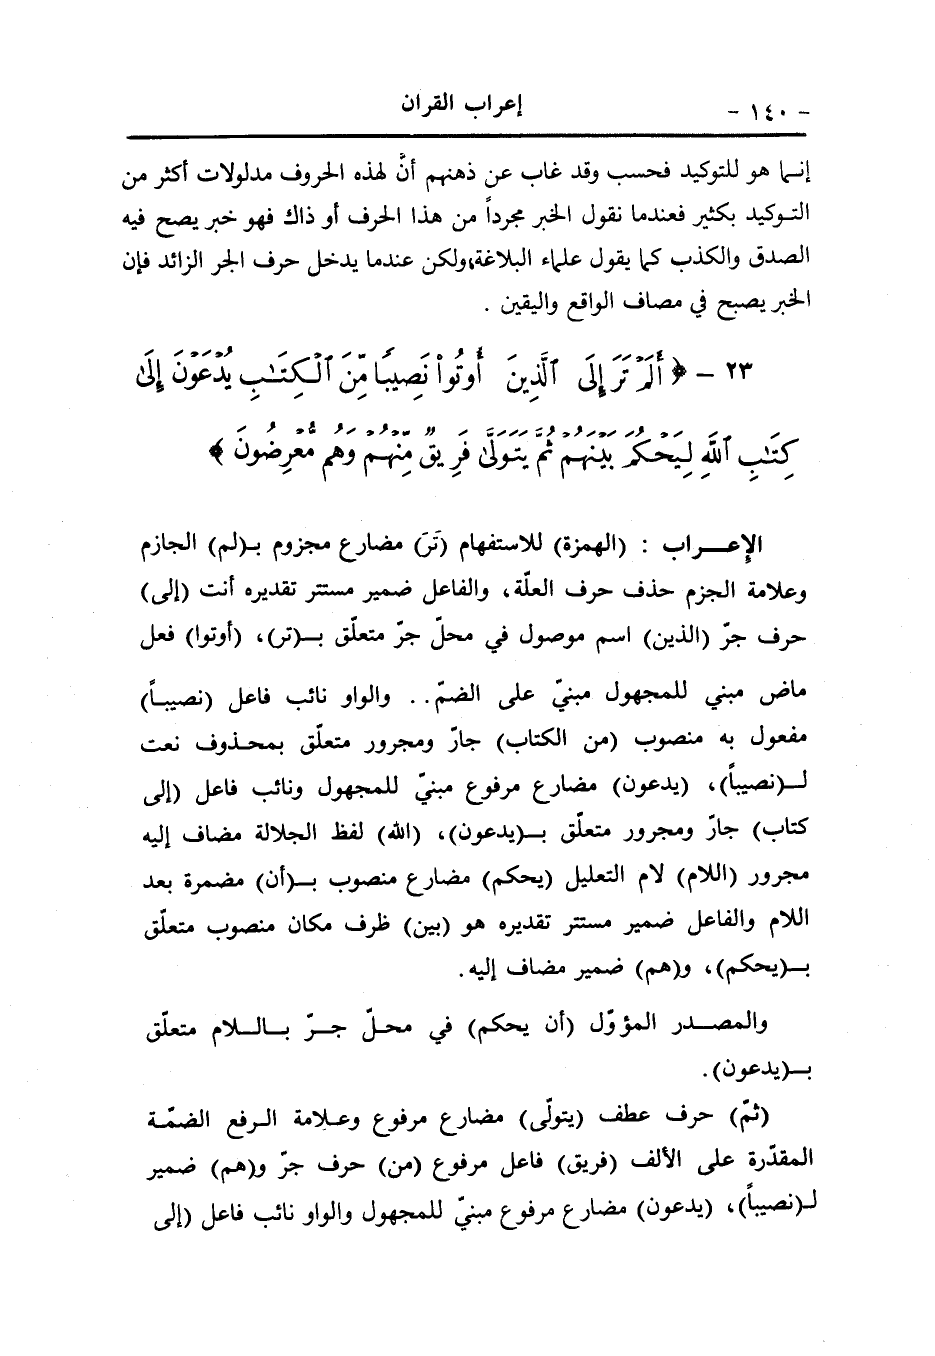 - ١٤٠ - إعراب القرآن
إنـما هو للتوكيد فحسب وقد غاب عن ذهنهم أنَّ لهذه الحروف مدلولات أكثر من
التـوكيد بكثير فعندما نقول الخبر مجرداً من هذا الحرف أو ذاك فهو خبر يصح فيه
الصدق والكذب كما يقول علماء البلاغة،ولكن عندما يدخل حرف الجر الزائد فإن
الخبر يصبح في مصاف الواقع واليقين .
٢٣ - ﴿ أَلَمْ تَرَ إِلَى ٱلَّذِينَ أُوتُوا۟ نَصِيبًا مِّنَ ٱلْكِتَـٰبِ يُدْعَوْنَ إِلَىٰ
كِتَـٰبِ ٱللَّهِ لِيَحْكُمَ بَيْنَهُمْ ثُمَّ يَتَوَلَّىٰ فَرِيقٌ مِّنْهُمْ وَهُم مُّعْرِضُونَ ﴾
الإعـــراب : (الهمزة) للاستفهام (تَرَ) مضارع مجزوم بـ(لم) الجازم
وعلامة الجزم حذف حرف العلّة، والفاعل ضمير مستتر تقديره أنت (إلى)
حرف جرّ (الذين) اسم موصول في محلّ جرّ متعلّق بــ(تر)، (أوتوا) فعل
ماض مبني للمجهول مبنيّ على الضمّ.. والواو نائب فاعل (نصيبـاً)
مفعول به منصوب (من الكتاب) جارّ ومجرور متعلّق بمحـذوف نعت
لــ(نصيباً)، (يدعون) مضارع مرفوع مبنيّ للمجهول ونائب فاعل (إلى
كتاب) جارّ ومجرور متعلّق بــ(يدعون)، (الله) لفظ الجلالة مضاف إليه
مجرور (اللام) لام التعليل (يحكم) مضارع منصوب بــ(أن) مضمرة بعد
اللام والفاعل ضمير مستتر تقديره هو (بين) ظرف مكان منصوب متعلّق
بــ(يحكم)، و(هم) ضمير مضاف إليه.
والمصــدر المؤوّل (أن يحكم) في محـلّ جــرّ بـالـلام متعلّق
بــ(يدعون).
(ثمّ) حرف عطف (يتولّى) مضارع مرفوع وعـلامة الـرفع الضمّـة
المقدّرة على الألف (فريق) فاعل مرفوع (من) حرف جرّ و(هم) ضمير
لـ(نصيباً)، (يدعون) مضارع مرفوع مبنيّ للمجهول والواو نائب فاعل (إلى